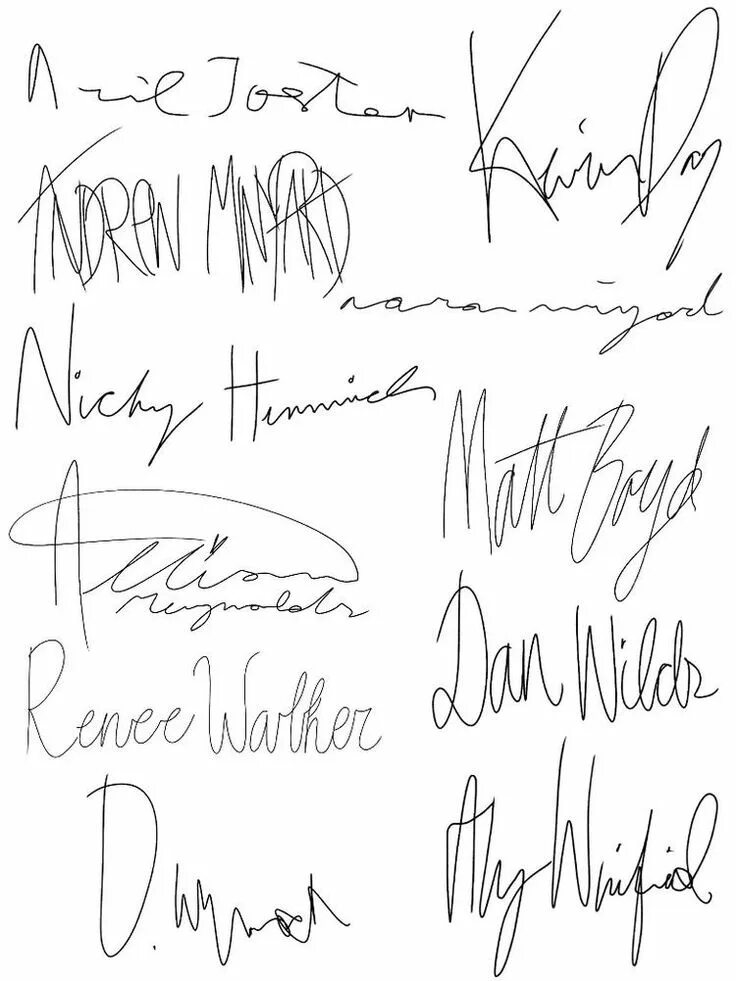 Neil Josten
Kevin Day
ANDREW MINYARD
aaron minyard
Nicky Hemmick
Matt Boyd
Allison
Reynolds
Dan Wilds
Renee Walker
D. Wymack
Aby Winfield